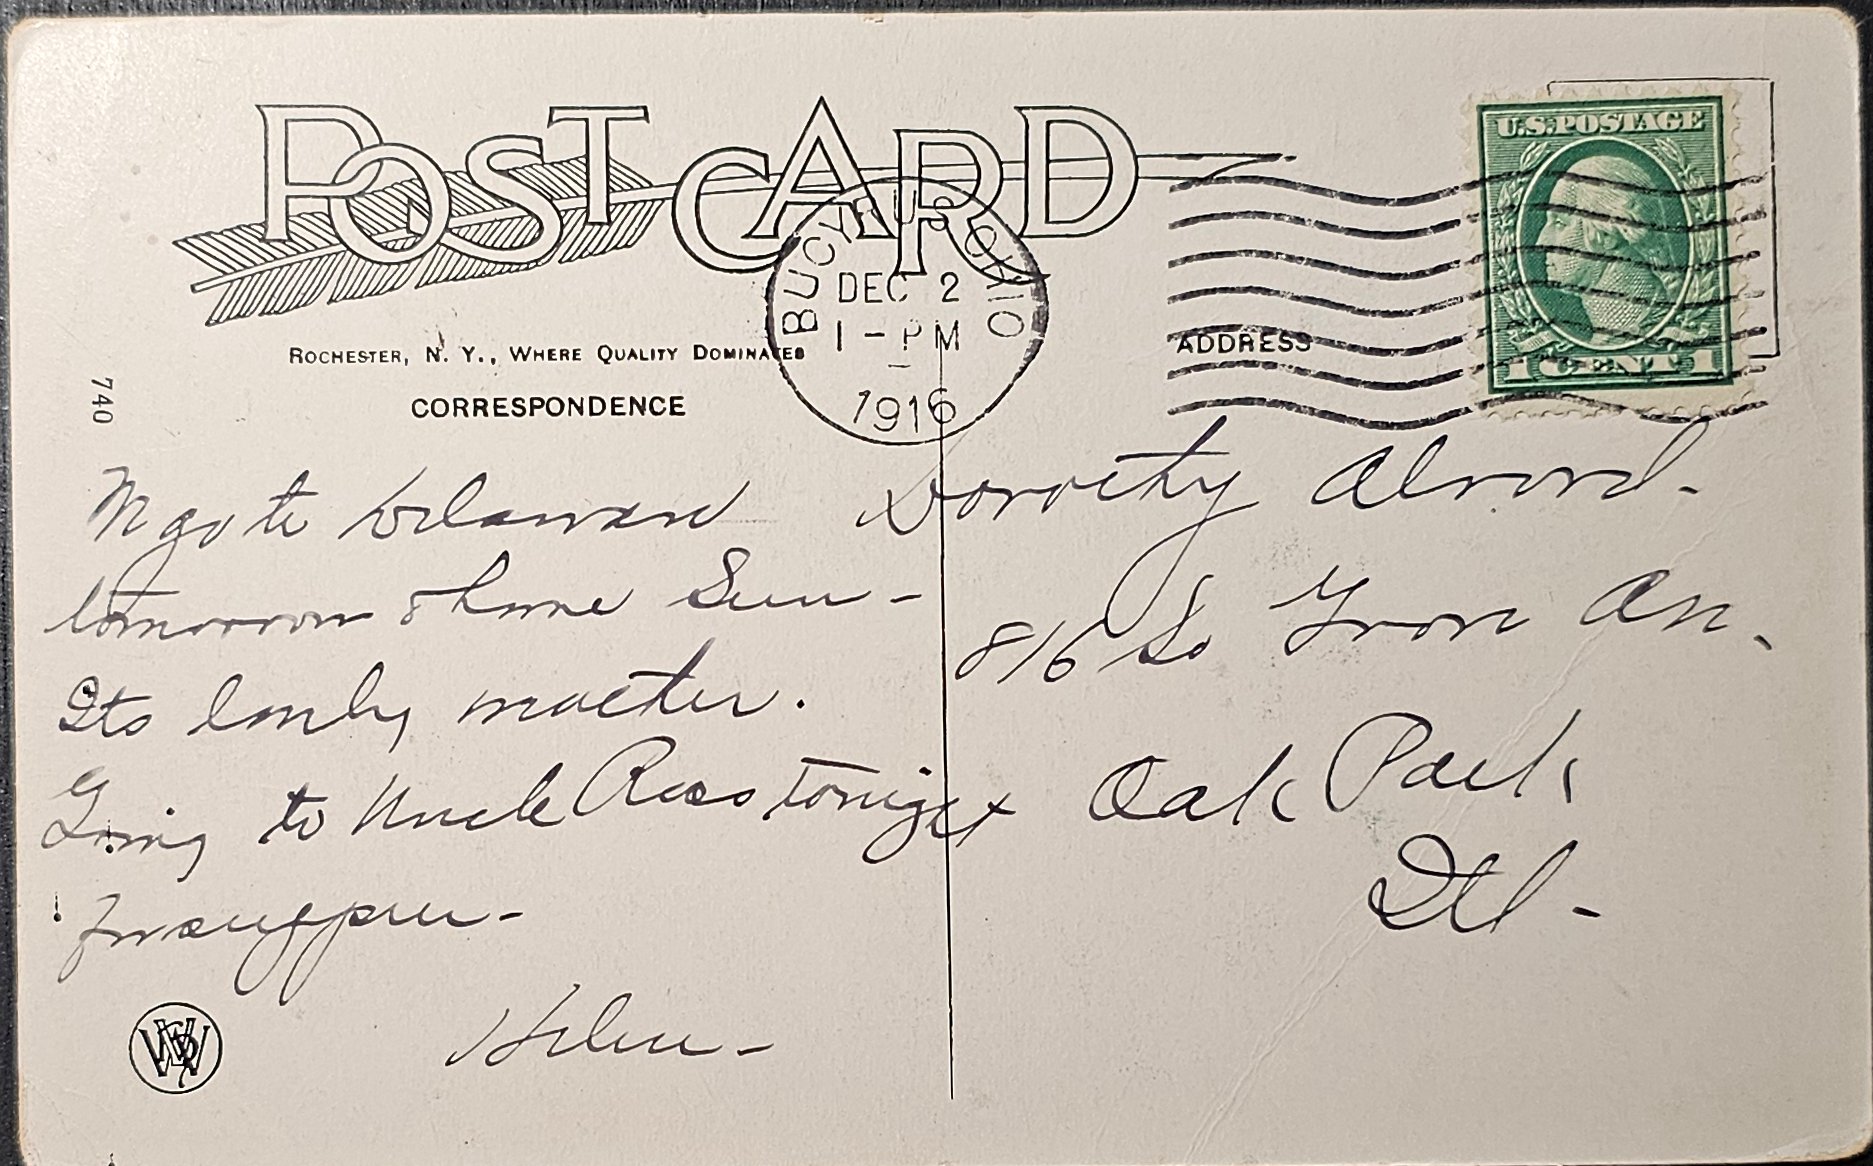 POST CARD
ROCHESTER, N. Y., WHERE QUALITY DOMINATES
CORRESPONDENCE
740
BUCYRUS OHIO
DEC 2
1-PM
1916
ADDRESS
U.S. POSTAGE
1 CENT 1
go to Delaware
tomorrow & home Sun-
Its lonly mother.
Going to Uncle Ross tonight
for supper-
Helen-
Dorothy Alvord-
816 So Grove Av.
Oak Park
Ill-